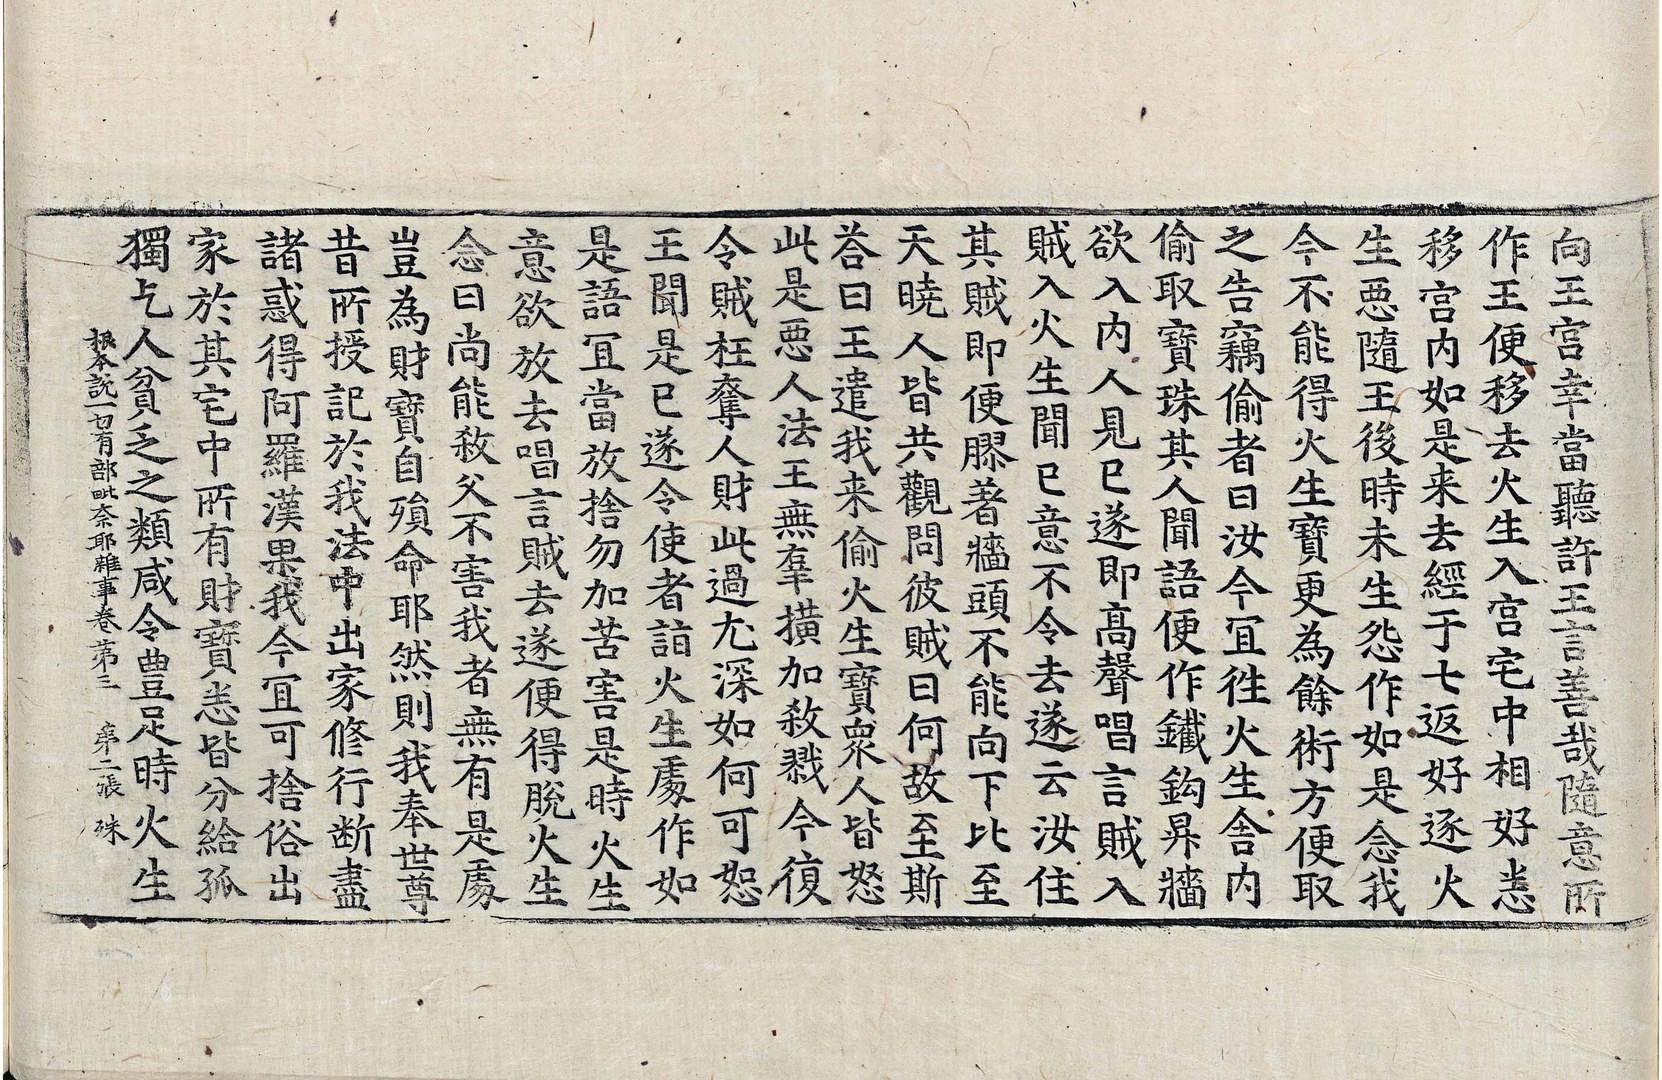 向王宮幸當聽許王言善哉隨意所
作王便移去火生入宮宅中相好悉
移宮内如是来去經于七返好逐火
生惡隨王後時未生怨作如是念我
今不能得火生寶更為餘術方便取
之告竊偷者曰汝今冝徃火生舎内
偷取寶珠其人聞語便作鐵鈎舁牆
欲入内人見已遂即高聲唱言賊入
賊入火生聞已意不令去遂云汝住
其賊即便膠著牆頭不能向下比至
天曉人皆共觀問彼賊曰何故至斯
荅曰王遣我来偷火生寶衆人皆怒
此是惡人法王無辜橫加殺戮今復
令賊枉奪人財此過尤深如何可恕
王聞是已遂令使者詣火生處作如
是語冝當放捨勿加苦害是時火生
意欲放去唱言賊去遂便得脫火生
念曰尚能殺父不害我者無有是處
豈為財寶自殞命耶然則我奉世尊
昔所授記於我法中出家修行断盡
諸惑得阿羅漢果我今冝可捨俗出
家於其宅中所有財寶悉皆分給孤
獨乞人貧乏之類咸令豊足時火生
根本說一切有部毗奈耶雜事卷第三 第二張 殊